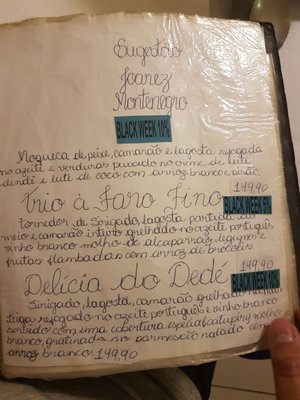 Sugestão
Joanez
Montenegro
BLACK WEEK 10%
Moqueca de peixe, camarão e lagosta refogada
no azeite e verduras puxado no creme de leite
dendê e leite de coco com arroz branco e pirão
149,90
Trio à Faro Fino BLACK WEEK 5%
tornedor de Sirigado, lagosta partida ao
meio e camarão inteiro grelhado no azeite português
vinho branco molho de alcaparras, legumes e
frutas flambadas com arroz de brócolis
149,90
Delícia do Dedé BLACK WEEK 10%
Sirigado, lagosta, camarão grelhado
refogado no azeite português e vinho branco
servido com uma cobertura especial catupiry molho
branco, gratinada ao parmesão natado com
arroz branco 149,90